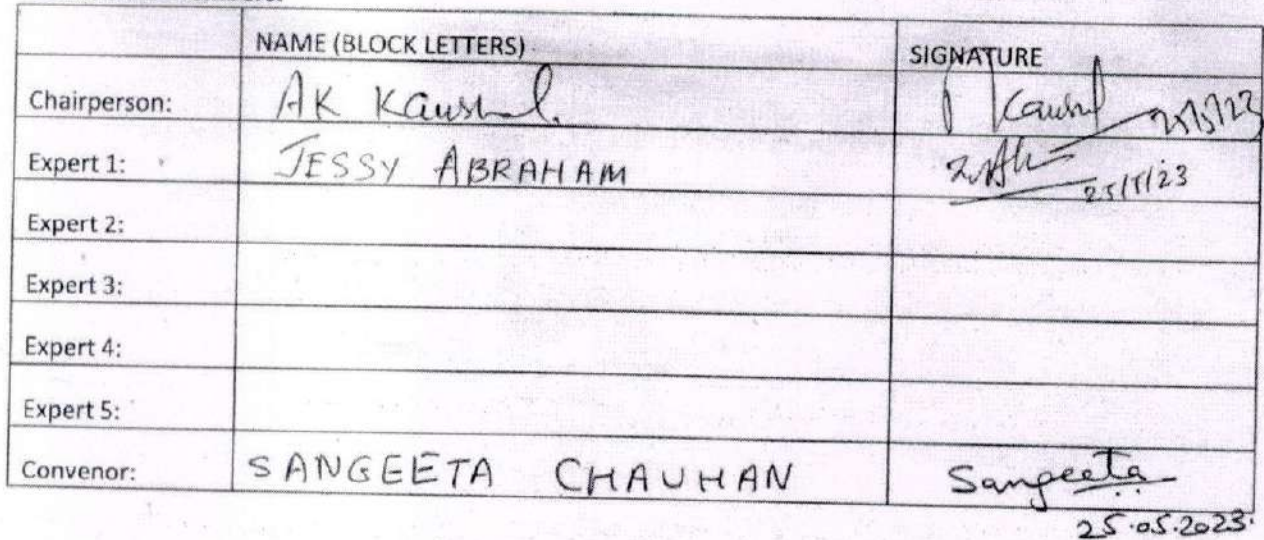 NAME (BLOCK LETTERS) SIGNATURE
Chairperson: AK Kaushal. Kaushal 25/5/23
Expert 1: JESSY ABRAHAM 25/5/23
Expert 2:
Expert 3:
Expert 4:
Expert 5:
Convenor: SANGEETA CHAUHAN Sangeeta
25.05.2023.